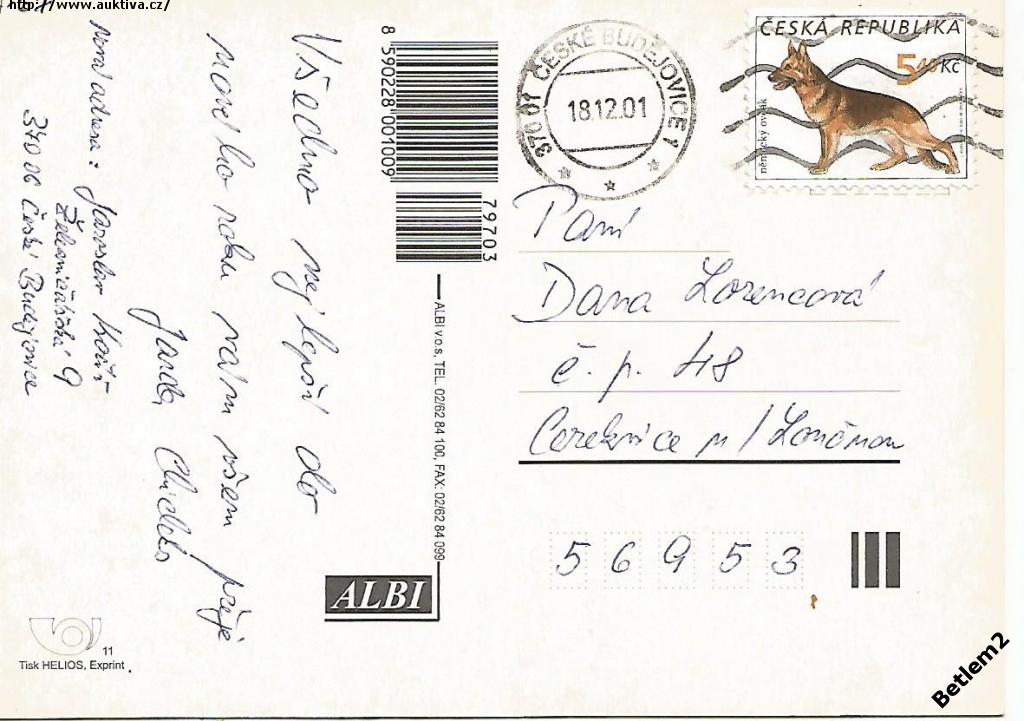 http://www.auktiva.cz/
Všechno nejlepší do
nového roku vám všem přeje
Jarda
Nová adresa: Jaroslav
9
370 06 České Budějovice
8 590228 001009
79703
ALBI v.o.s, TEL. 02/62 84 100, FAX: 02/62 84 099
ALBI
11
Tisk HELIOS, Exprint
370 01 ČESKÉ BUDĚJOVICE 1
18.12.01
ČESKÁ REPUBLIKA
5,40 Kč
německý ovčák
Paní
Dana Lorencová
č. p. 48
Cerekvice n/Loučnou
56953
Betlem2